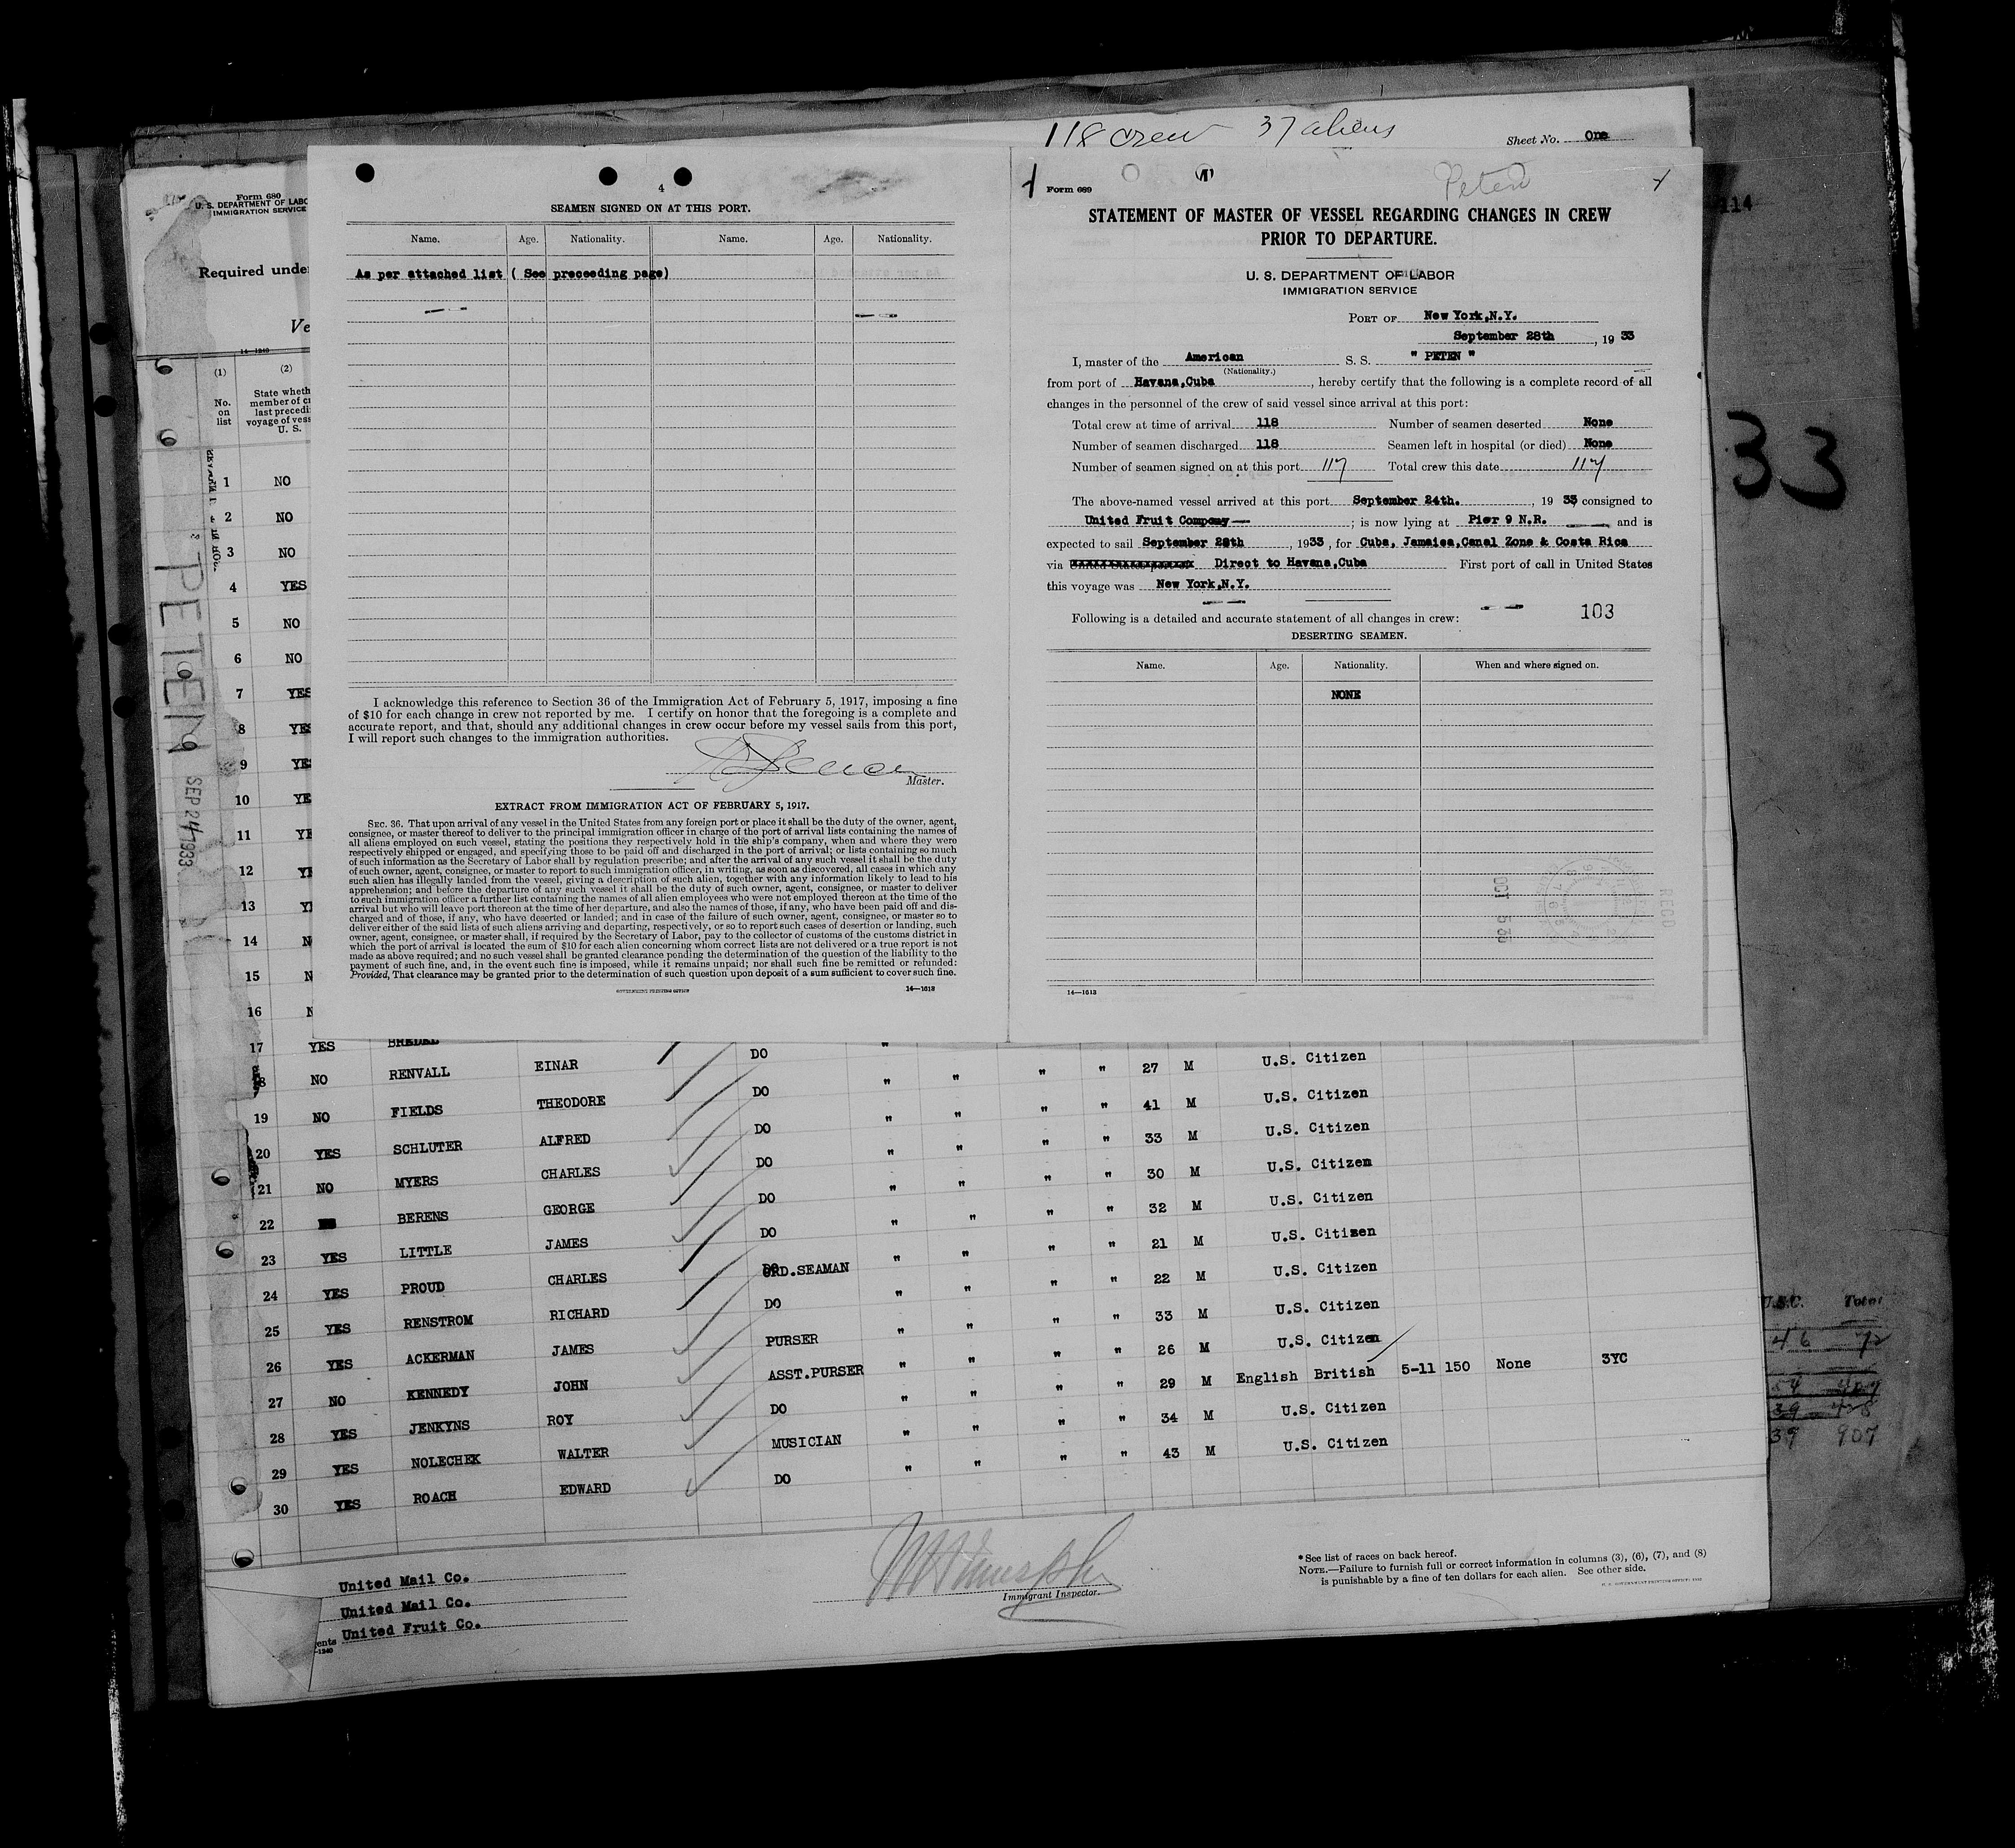 118 crew 37 aliens
Sheet No. One
Form 680
U. S. DEPARTMENT OF LABO
IMMIGRATION SERVICE
Required unde
Ve
14—1240
(1) (2)
No. on list
State wheth
member of c
last precedi
voyage of vess
U. S.
1 NO
2 NO
3 NO
4 YES
5 NO
6 NO
7 YES
8 YES
9 YES
10 YE
11 YE
12 YE
13 Y
14 N
15 N
16 N
PETEN
SEP 24 1933
4
SEAMEN SIGNED ON AT THIS PORT.
Name. Age. Nationality. Name. Age. Nationality.
As per attached list ( See preceeding page)
I acknowledge this reference to Section 36 of the Immigration Act of February 5, 1917, imposing a fine
of $10 for each change in crew not reported by me. I certify on honor that the foregoing is a complete and
accurate report, and that, should any additional changes in crew occur before my vessel sails from this port,
I will report such changes to the immigration authorities.
Master.
EXTRACT FROM IMMIGRATION ACT OF FEBRUARY 5, 1917.
SEC. 36. That upon arrival of any vessel in the United States from any foreign port or place it shall be the duty of the owner, agent,
consignee, or master thereof to deliver to the principal immigration officer in charge of the port of arrival lists containing the names of
all aliens employed on such vessel, stating the positions they respectively hold in the ship's company, when and where they were
respectively shipped or engaged, and specifying those to be paid off and discharged in the port of arrival; or lists containing so much
of such information as the Secretary of Labor shall by regulation prescribe; and after the arrival of any such vessel it shall be the duty
of such owner, agent, consignee, or master to report to such immigration officer, in writing, as soon as discovered, all cases in which any
such alien has illegally landed from the vessel, giving a description of such alien, together with any information likely to lead to his
apprehension; and before the departure of any such vessel it shall be the duty of such owner, agent, consignee, or master to deliver
to such immigration officer a further list containing the names of all alien employees who were not employed thereon at the time of the
arrival but who will leave port thereon at the time of her departure, and also the names of those, if any, who have been paid off and dis-
charged and of those, if any, who have deserted or landed; and in case of the failure of such owner, agent, consignee, or master so to
deliver either of the said lists of such aliens arriving and departing, respectively, or so to report such cases of desertion or landing, such
owner, agent, consignee, or master shall, if required by the Secretary of Labor, pay to the collector of customs of the customs district in
which the port of arrival is located the sum of $10 for each alien concerning whom correct lists are not delivered or a true report is not
made as above required; and no such vessel shall be granted clearance pending the determination of the question of the liability to the
payment of such fine, and, in the event such fine is imposed, while it remains unpaid; nor shall such fine be remitted or refunded:
Provided, That clearance may be granted prior to the determination of such question upon deposit of a sum sufficient to cover such fine.
GOVERNMENT PRINTING OFFICE 14—1613
Form 689
Peten
STATEMENT OF MASTER OF VESSEL REGARDING CHANGES IN CREW
PRIOR TO DEPARTURE.
U. S. DEPARTMENT OF LABOR
IMMIGRATION SERVICE
PORT OF New York,N.Y.
September 28th, 19 33
I, master of the American S. S. " PETEN "
(Nationality.)
from port of Havana,Cuba, hereby certify that the following is a complete record of all
changes in the personnel of the crew of said vessel since arrival at this port:
Total crew at time of arrival 118 Number of seamen deserted None
Number of seamen discharged 118 Seamen left in hospital (or died) None
Number of seamen signed on at this port 117 Total crew this date 117
The above-named vessel arrived at this port September 24th., 19 33, consigned to
United Fruit Company ; is now lying at Pier 9 N.R. and is
expected to sail September 28th, 1933, for Cuba, Jamaica,Canal Zone & Costa Rica
via Direct to Havana,Cuba First port of call in United States
this voyage was New York,N.Y.
Following is a detailed and accurate statement of all changes in crew:
103
DESERTING SEAMEN.
Name. Age. Nationality. When and where signed on.
NONE
OCT 5 33
RECD
14—1613
114
33
17 YES BREDEL DO "
18 NO RENVALL EINAR DO " " " " 27 M U.S. Citizen
19 NO FIELDS THEODORE DO " " " " 41 M U.S. Citizen
20 YES SCHLUTER ALFRED DO " " " " 33 M U.S. Citizen
21 NO MYERS CHARLES DO " " " " 30 M U.S. Citizen
22 BERENS GEORGE DO " " " " 32 M U.S. Citizen
23 YES LITTLE JAMES DO " " " " 21 M U.S. Citizen
24 YES PROUD CHARLES ORD.SEAMAN " " " " 22 M U.S. Citizen
25 YES RENSTROM RICHARD DO " " " " 33 M U.S. Citizen
26 YES ACKERMAN JAMES PURSER " " " " 26 M U.S. Citizen
27 NO KENNEDY JOHN ASST.PURSER " " " " 29 M English British 5-11 150 None 3YC
28 YES JENKYNS ROY DO " " " " 34 M U.S. Citizen
29 YES NOLECHEK WALTER MUSICIAN " " " " 43 M U.S. Citizen
30 YES ROACH EDWARD DO
U.S.C. Total
46 72
39 907
United Mail Co.
United Mail Co.
ents United Fruit Co.
-1240
Immigrant Inspector.
* See list of races on back hereof.
NOTE.—Failure to furnish full or correct information in columns (3), (6), (7), and (8)
is punishable by a fine of ten dollars for each alien. See other side.
U. S. GOVERNMENT PRINTING OFFICE: 1932